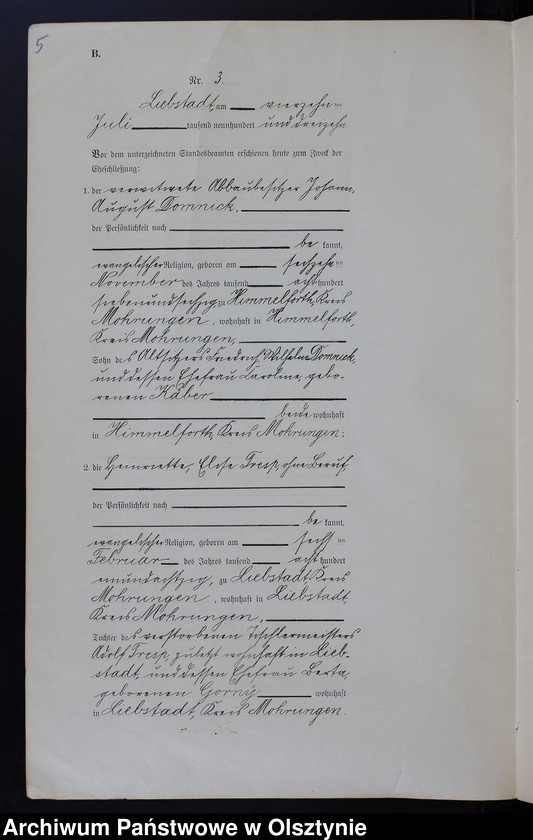 5
B.
Nr. 3.
Liebstadt, am vierzehnten
Juli tausend neunhundert und dreizehn
Vor dem unterzeichneten Standesbeamten erschienen heute zum Zweck der
Eheschließung:
1. der verwitwete Abbaubesitzer Johann
August Domnick,
der Persönlichkeit nach
be kannt,
evangelischer Religion, geboren am sechzehnten
November des Jahres tausend acht hundert
siebenundsechzig zu Himmelforth, Kreis
Mohrungen, wohnhaft in Himmelforth,
Kreis Mohrungen,
Sohn des Altsitzers Friedrich Wilhelm Domnick,
und dessen Ehefrau Karoline, gebo-
renen Käber
beide wohnhaft
in Himmelforth, Kreis Mohrungen;
2. die Henriette, Elise Tresp, ohne Beruf,
der Persönlichkeit nach
be kannt,
evangelischer Religion, geboren am sechsten
Februar des Jahres tausend acht hundert
neunundachtzig, zu Liebstadt, Kreis
Mohrungen, wohnhaft in Liebstadt,
Kreis Mohrungen,
Tochter des verstorbenen Tischlermeisters
Adolf Tresp, zuletzt wohnhaft in Lieb-
stadt, und dessen Ehefrau Berta,
geborenen Gorny, wohnhaft
in Liebstadt, Kreis Mohrungen.
Archiwum Państwowe w Olsztynie